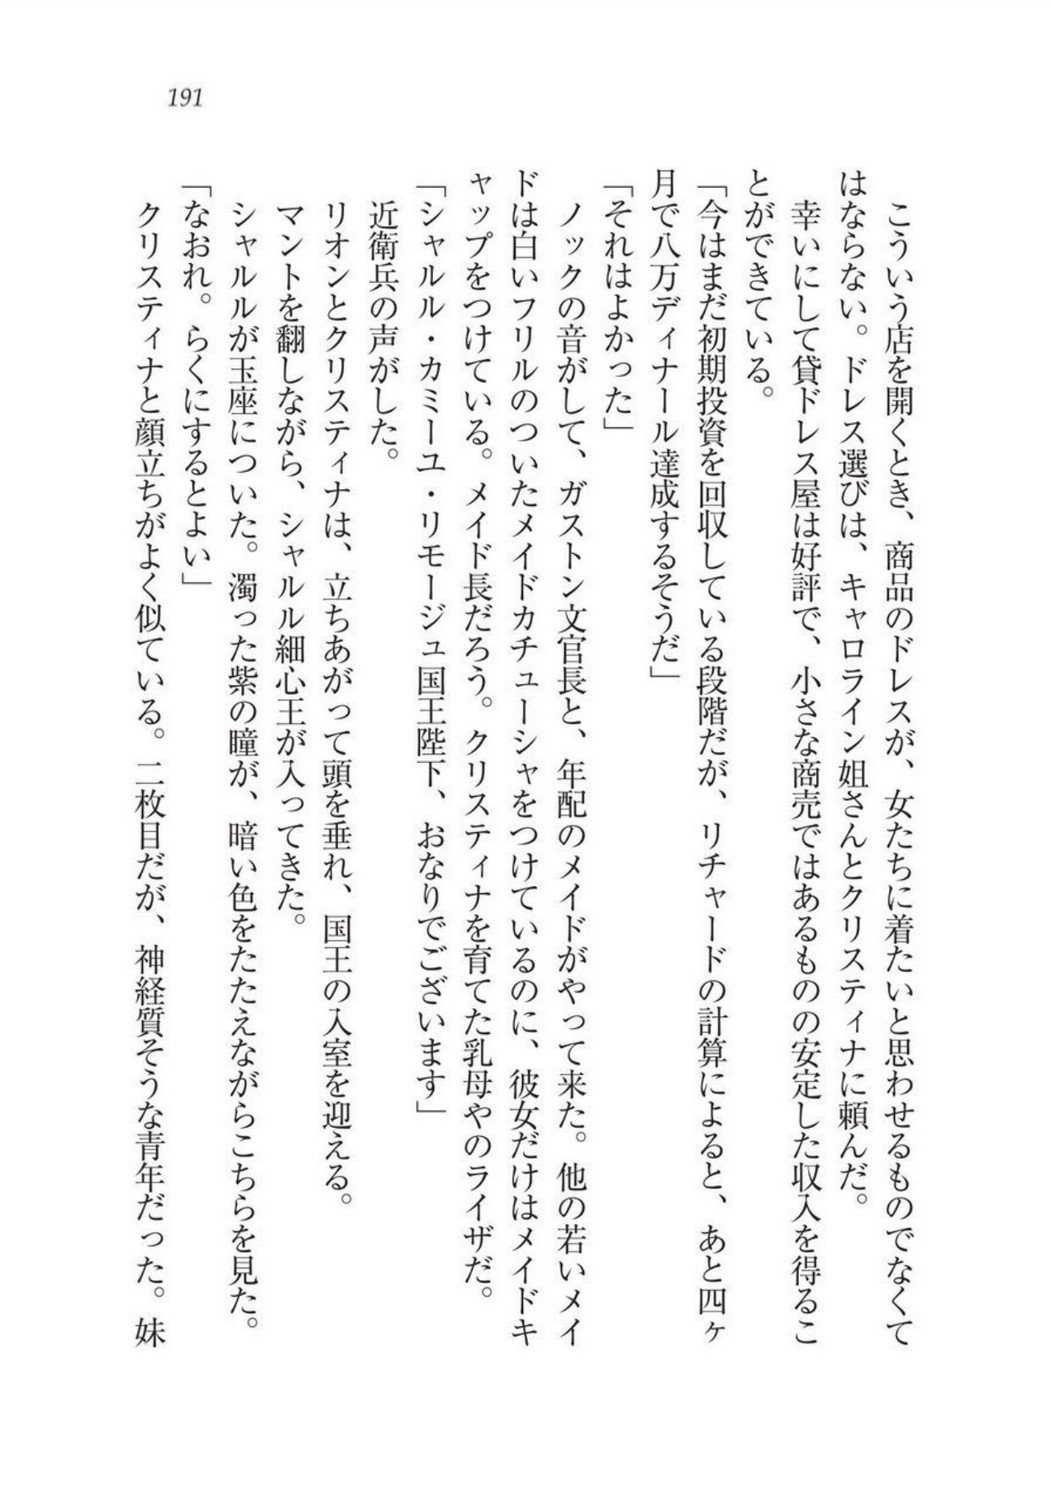 191
　こういう店を開くとき、商品のドレスが、女たちに着たいと思わせるものでなくて
はならない。ドレス選びは、キャロライン姐さんとクリスティナに頼んだ。
　幸いにして貸ドレス屋は好評で、小さな商売ではあるものの安定した収入を得るこ
とができている。
「今はまだ初期投資を回収している段階だが、リチャードの計算によると、あと四ヶ
月で八万ディナール達成するそうだ」
「それはよかった」
　ノックの音がして、ガストン文官長と、年配のメイドがやって来た。他の若いメイ
ドは白いフリルのついたメイドカチューシャをつけているのに、彼女だけはメイドキ
ャップをつけている。メイド長だろう。クリスティナを育てた乳母やのライザだ。
「シャルル・カミーユ・リモージュ国王陛下、おなりでございます」
　近衛兵の声がした。
　リオンとクリスティナは、立ちあがって頭を垂れ、国王の入室を迎える。
　マントを翻しながら、シャルル細心王が入ってきた。
　シャルルが玉座についた。濁った紫の瞳が、暗い色をたたえながらこちらを見た。
「なおれ。らくにするとよい」
　クリスティナと顔立ちがよく似ている。二枚目だが、神経質そうな青年だった。妹